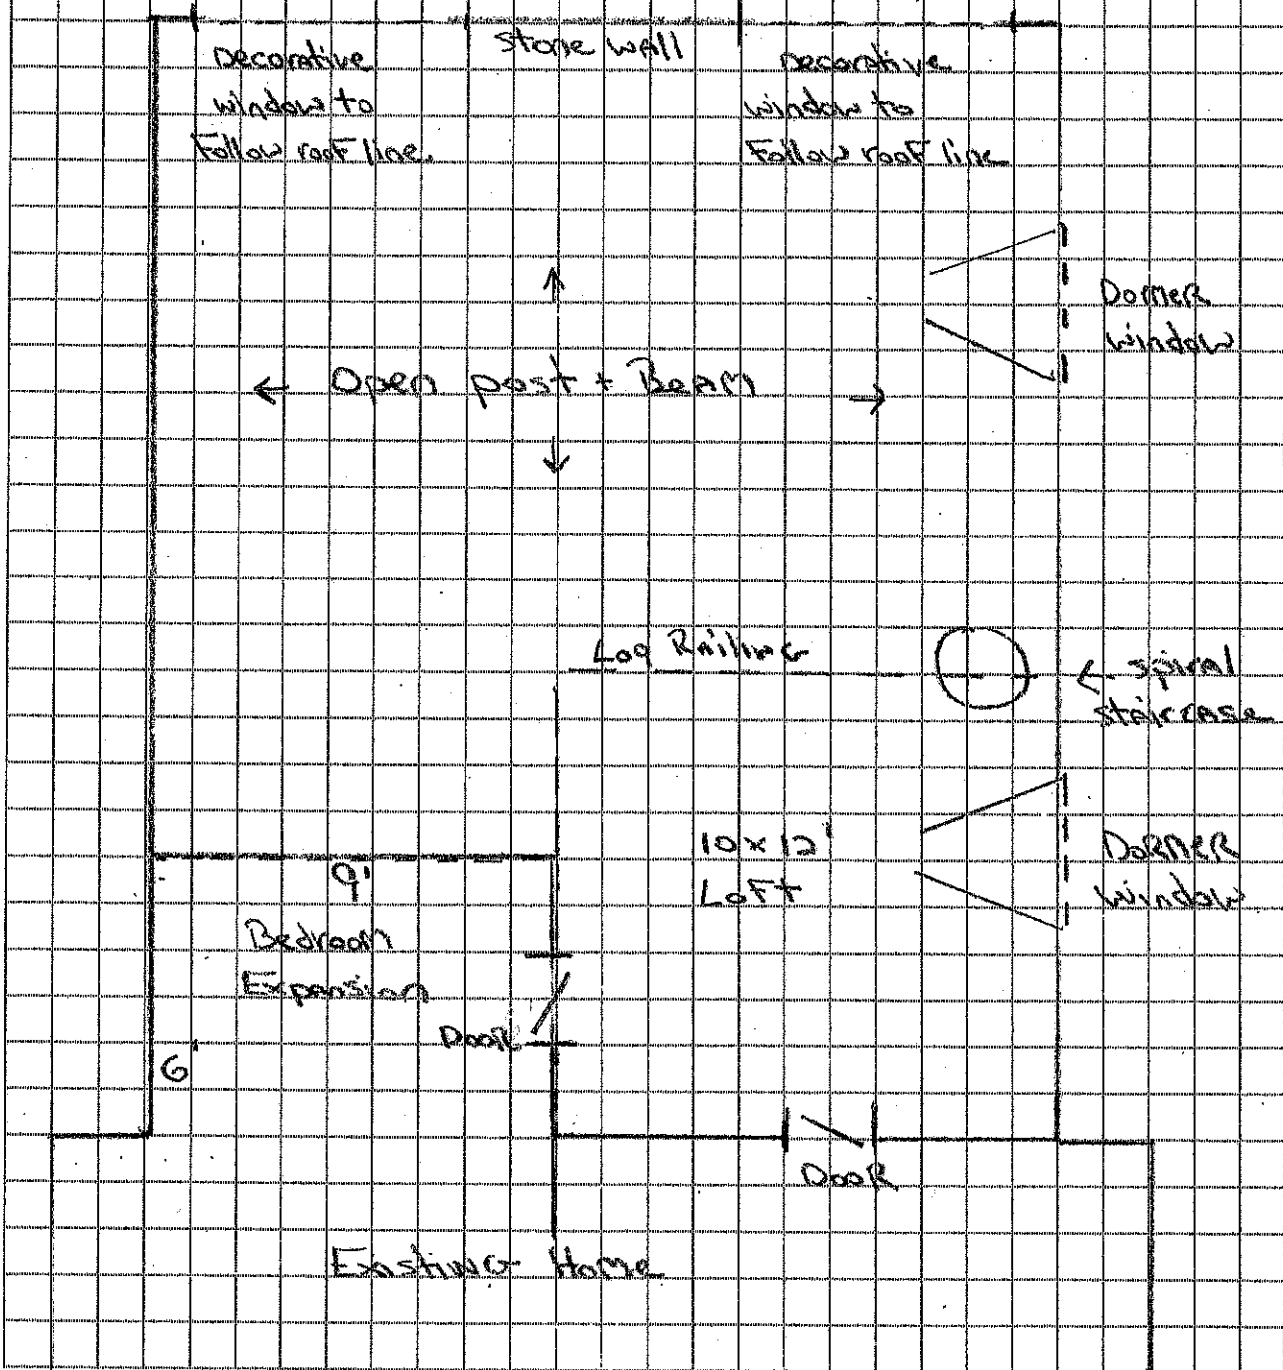 stone wall
Decorative
window to
Follow roof line.
Decorative
window to
Follow roof line
Dormer
window
Open post + Beam
Log Railing
spiral
staircase
10x12'
Loft
Dormer
window
9'
Bedroom
Expansion
Door
6'
Door
Existing Home